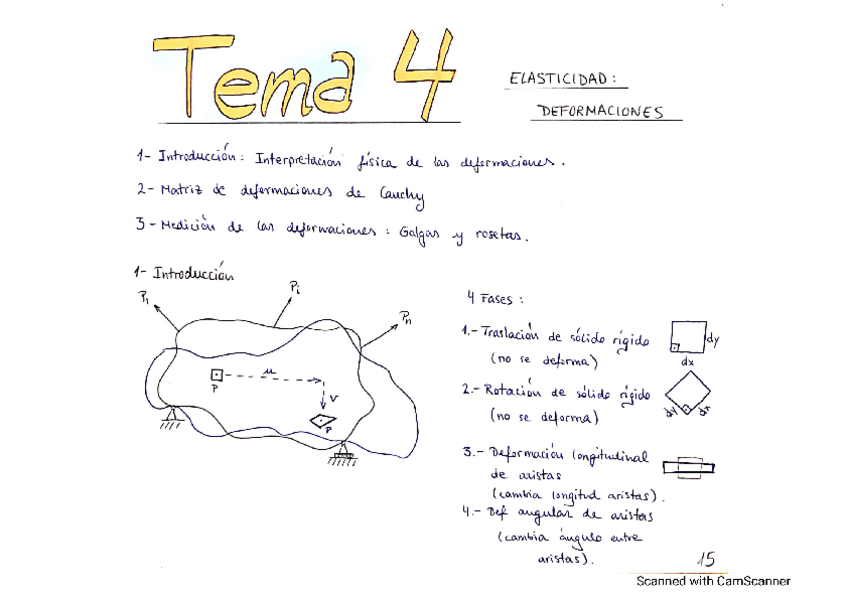 Tema 4
ELASTICIDAD:
DEFORMACIONES
1- Introducción: Interpretación física de las deformaciones.
2- Matriz de deformaciones de Cauchy
3- Medición de las deformaciones: Galgas y rosetas.
1- Introducción
P1
Pi
Pn
P
u
v
P
4 Fases:
1.- Traslación de sólido rígido
(no se deforma)
dy
dx
2.- Rotación de sólido rígido
(no se deforma)
3.- Deformación longitudinal
de aristas
(cambia longitud aristas).
4.- Def angular de aristas
(cambia ángulo entre
aristas).
15
Scanned with CamScanner